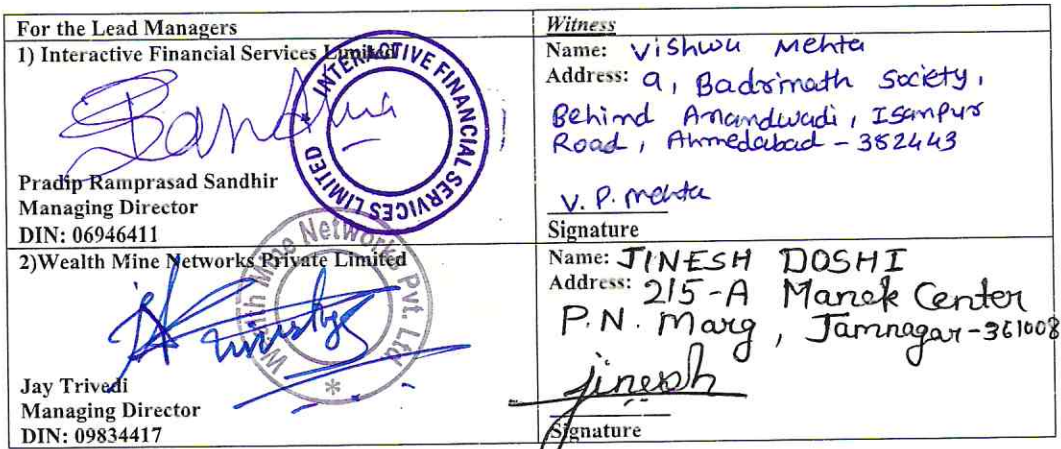 For the Lead Managers
1) Interactive Financial Services Limited
INTERACTIVE FINANCIAL SERVICES LIMITED
Sandhir
Pradip Ramprasad Sandhir
Managing Director
DIN: 06946411
Witness
Name: Vishwa Mehta
Address: 9, Badrinath Society,
Behind Anandwadi, Isanpur
Road, Ahmedabad - 382443
V. P. Mehta
Signature
2)Wealth Mine Networks Private Limited
Wealth Mine Networks Pvt. Ltd
*
Jay Trivedi
Managing Director
DIN: 09834417
Name: JINESH DOSHI
Address: 215-A Manek Center
P.N. Marg, Jamnagar-361008
jinesh
Signature